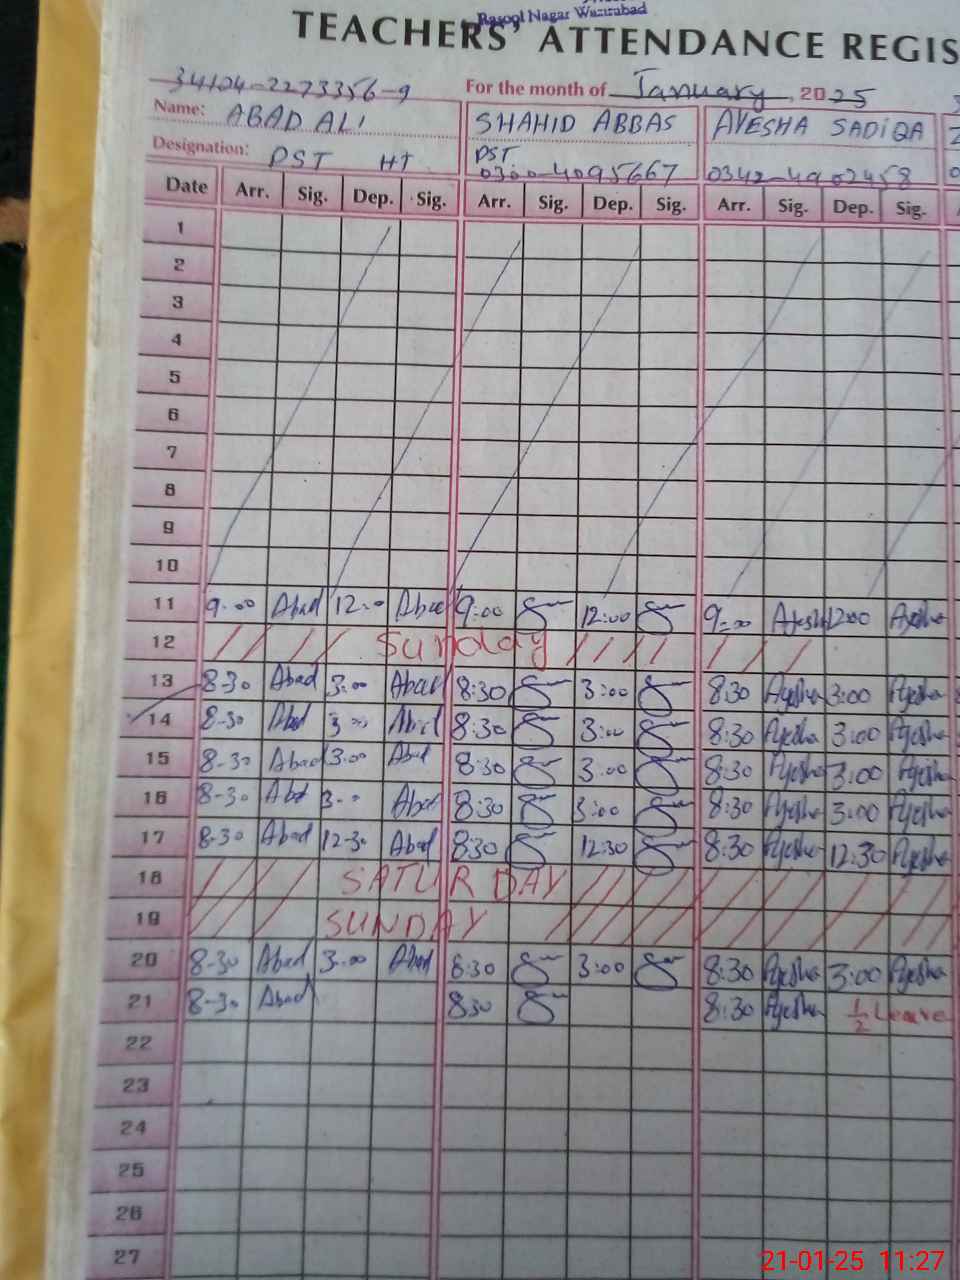 Rasool Nagar Wazirabad
TEACHERS' ATTENDANCE REGIS
34104-2273356-9 For the month of January, 2025
Name: ABAD ALI SHAHID ABBAS AYESHA SADIQA
Designation: PST HT PST
0300-4095667 0342-4902458
Date Arr. Sig. Dep. Sig. Arr. Sig. Dep. Sig. Arr. Sig. Dep. Sig.
1
2
3
4
5
6
7
8
9
10
11 9-00 Abad 12:0 Abad 9:00 12:00 9:00 Ayesha 12:00 Ayesha
12 Sunday
13 8-30 Abad 3:00 Abad 8:30 3:00 8:30 Ayesha 3:00 Ayesha
14 8-30 Abad 3 00 Abad 8:30 3:00 8:30 Ayesha 3:00 Ayesha
15 8-30 Abad 3:00 Abad 8:30 3:00 8:30 Ayesha 3:00 Ayesha
16 8-30 Abad 3-0 Abad 8:30 3:00 8:30 Ayesha 3:00 Ayesha
17 8-30 Abad 12-30 Abad 830 12:30 8:30 Ayesha 12:30 Ayesha
18 SATURDAY
19 SUNDAY
20 8-30 Abad 3:00 Abad 8:30 3:00 8:30 Ayesha 3:00 Ayesha
21 8-30 Abad 830 8:30 Ayesha 1/2 Leave
22
23
24
25
26
27
21-01-25 11:27